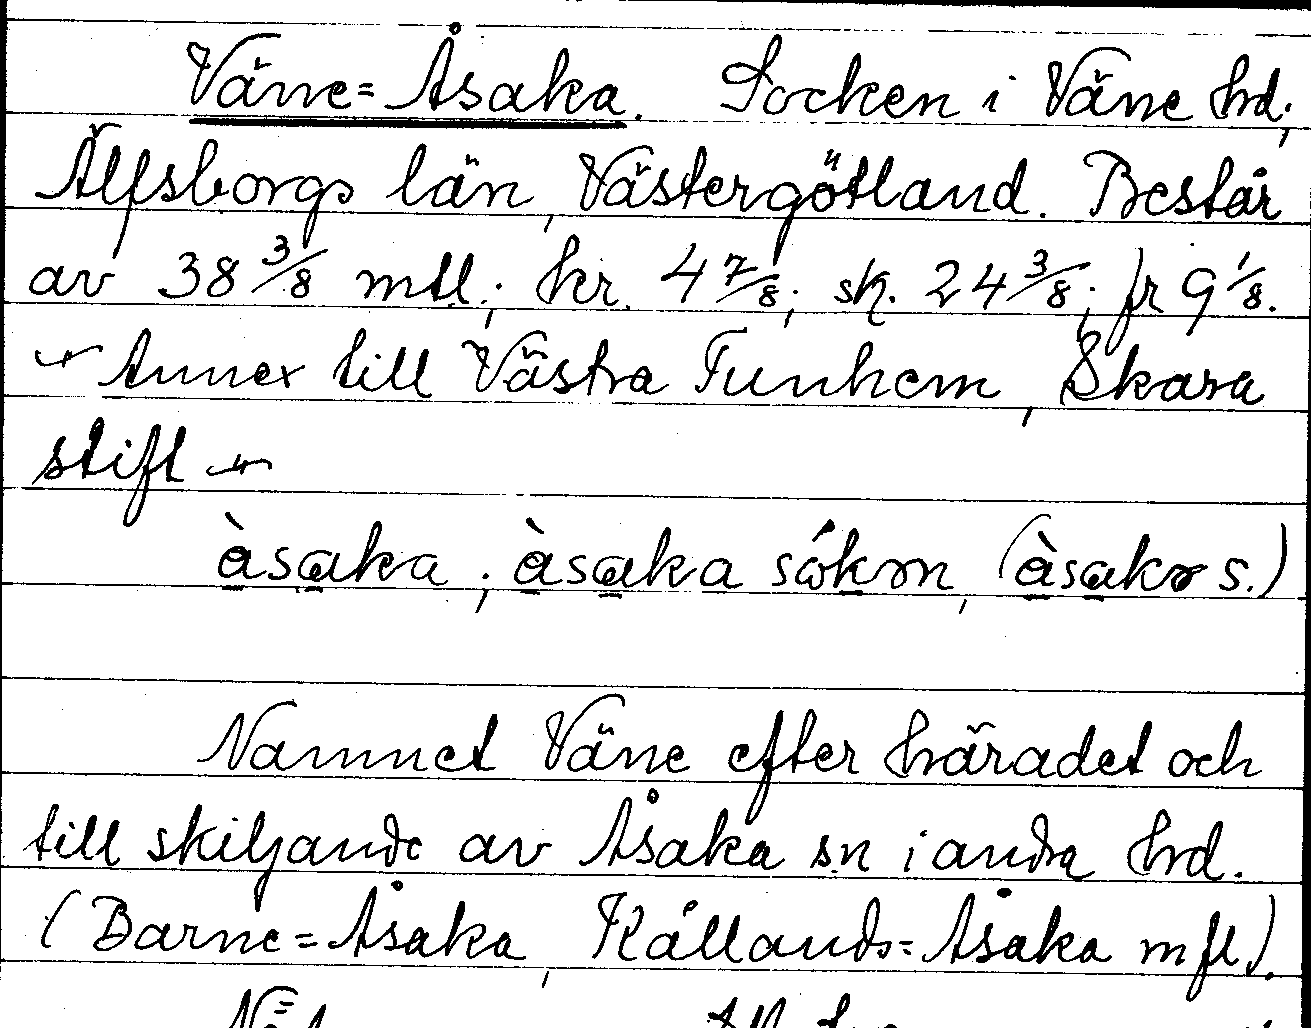 Väne=Åsaka. Socken i Väne hrd,
Älfsborgs län, Västergötland. Består
av 38 3/8 mtl.; kr. 4 7/8; sk. 24 3/8; fr 9 1/8.
Annex till Västra Tunhem, Skara
stift
àsaka, àsaka såkṇ, (àsakɤ s.)
Namnet Väne efter häradet och
till skiljande av Åsaka sn i andra hrd.
(Barne=Åsaka, Kållands=Åsaka m fl).